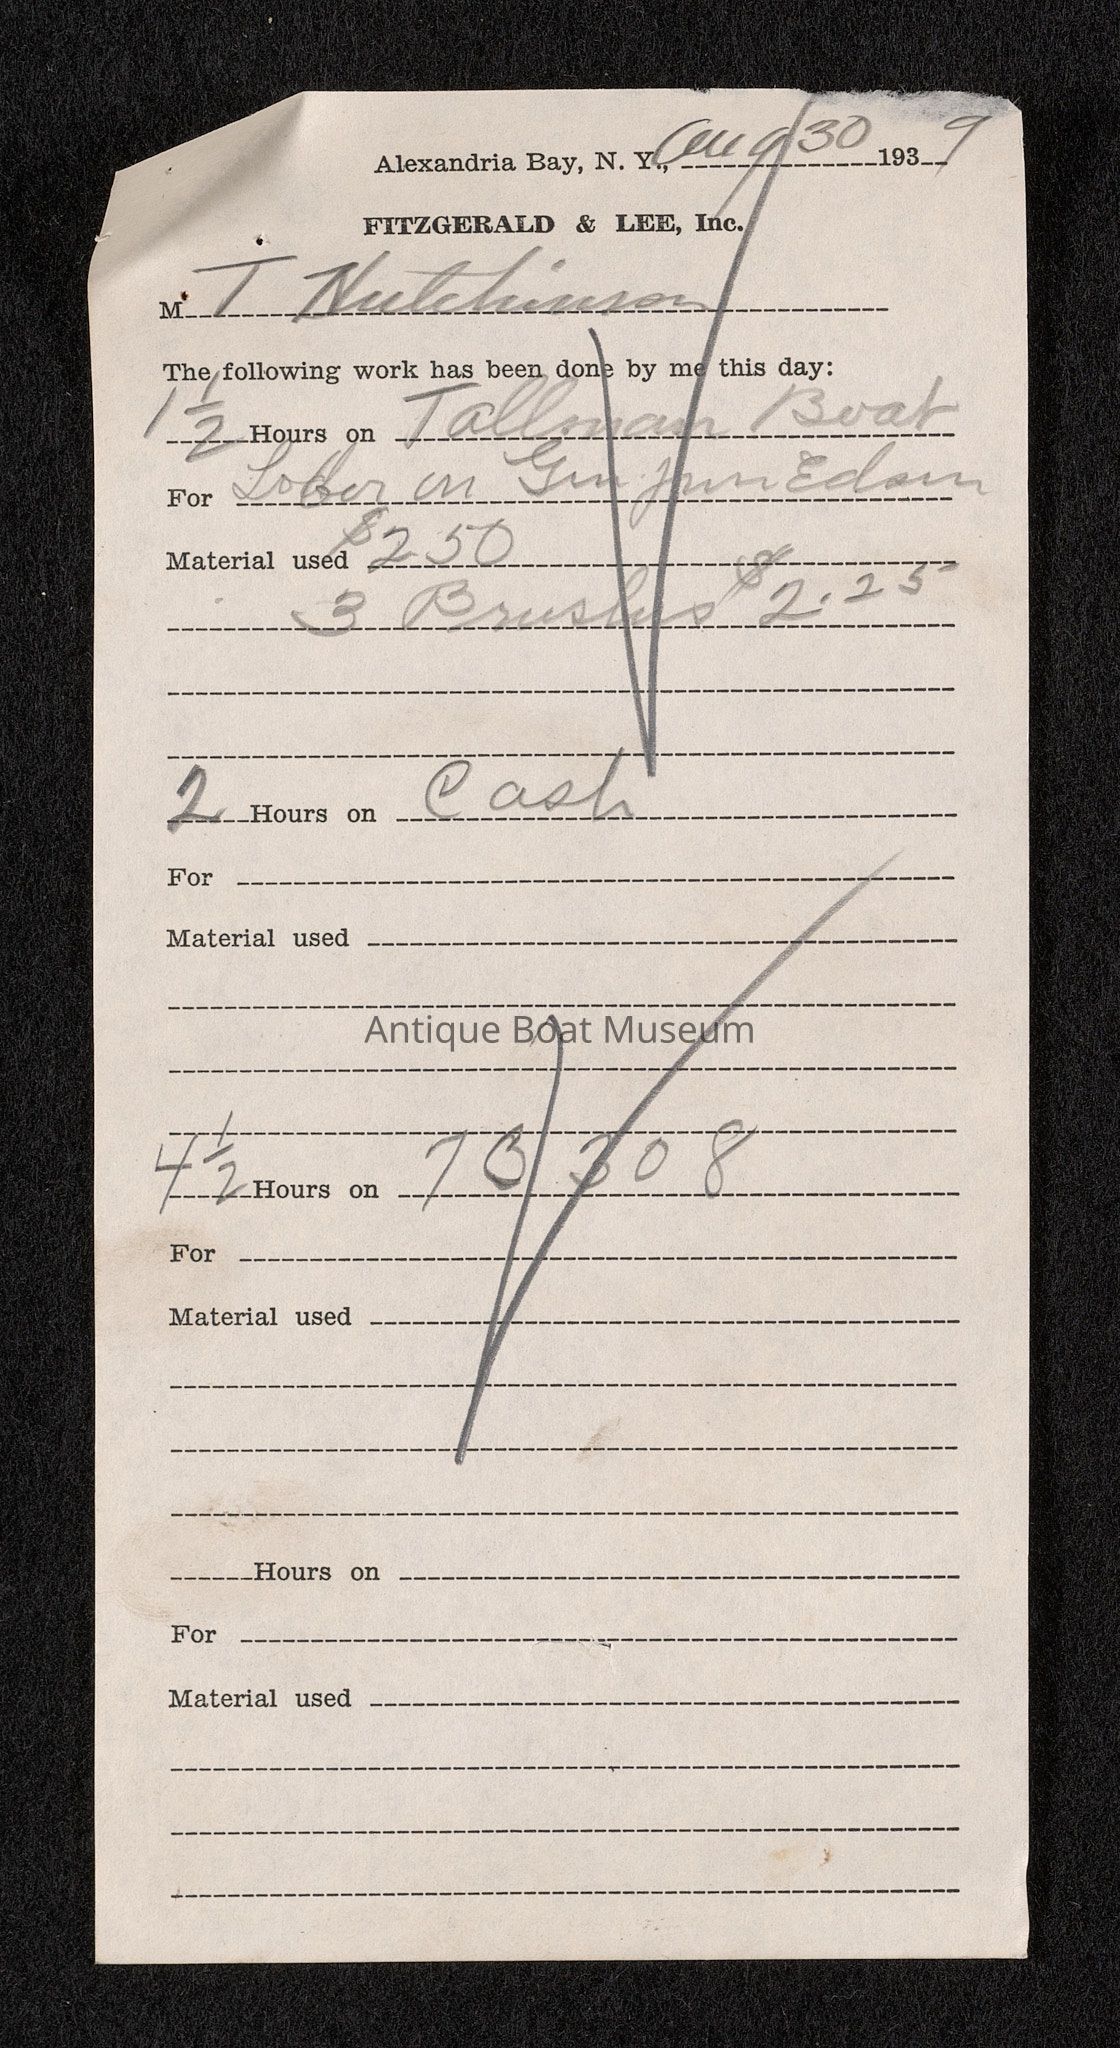 Alexandria Bay, N. Y., Aug 30 1939
FITZGERALD & LEE, Inc.
M T Hutchinson
The following work has been done by me this day:
1 1/2 Hours on Tallman Boat
For Labor on Gen from Edson
Material used $2 50
3 Brushes $2.25
2 Hours on Cash
For
Material used
Antique Boat Museum
4 1/2 Hours on 308
For
Material used
Hours on
For
Material used